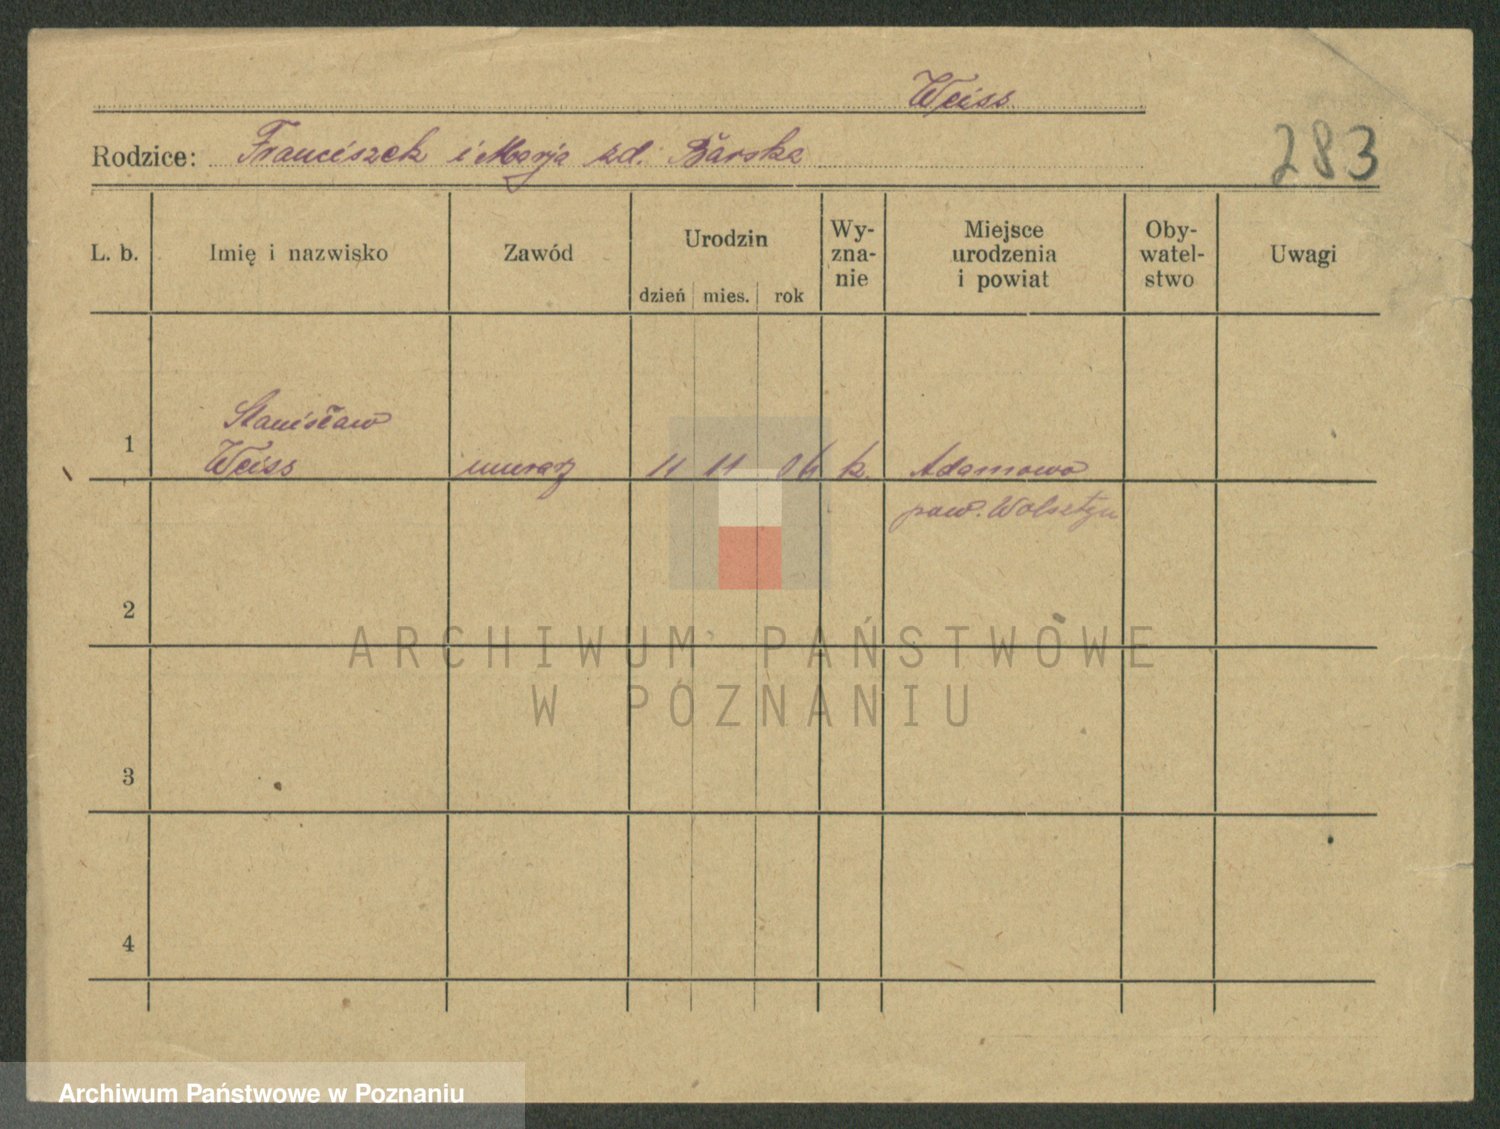 Weiss
Rodzice: Franciszek i Marja zd. Barska
283
L. b. Imię i nazwisko Zawód Urodzin dzień mies. rok Wy-zna-nie Miejsce urodzenia i powiat Oby-watel-stwo Uwagi
Stanisław
1 Weiss murarz 11 11 06 k. Adamowo
pow. Wolsztyn
2
ARCHIWUM PAŃSTWOWE
W POZNANIU
3
4
Archiwum Państwowe w Poznaniu